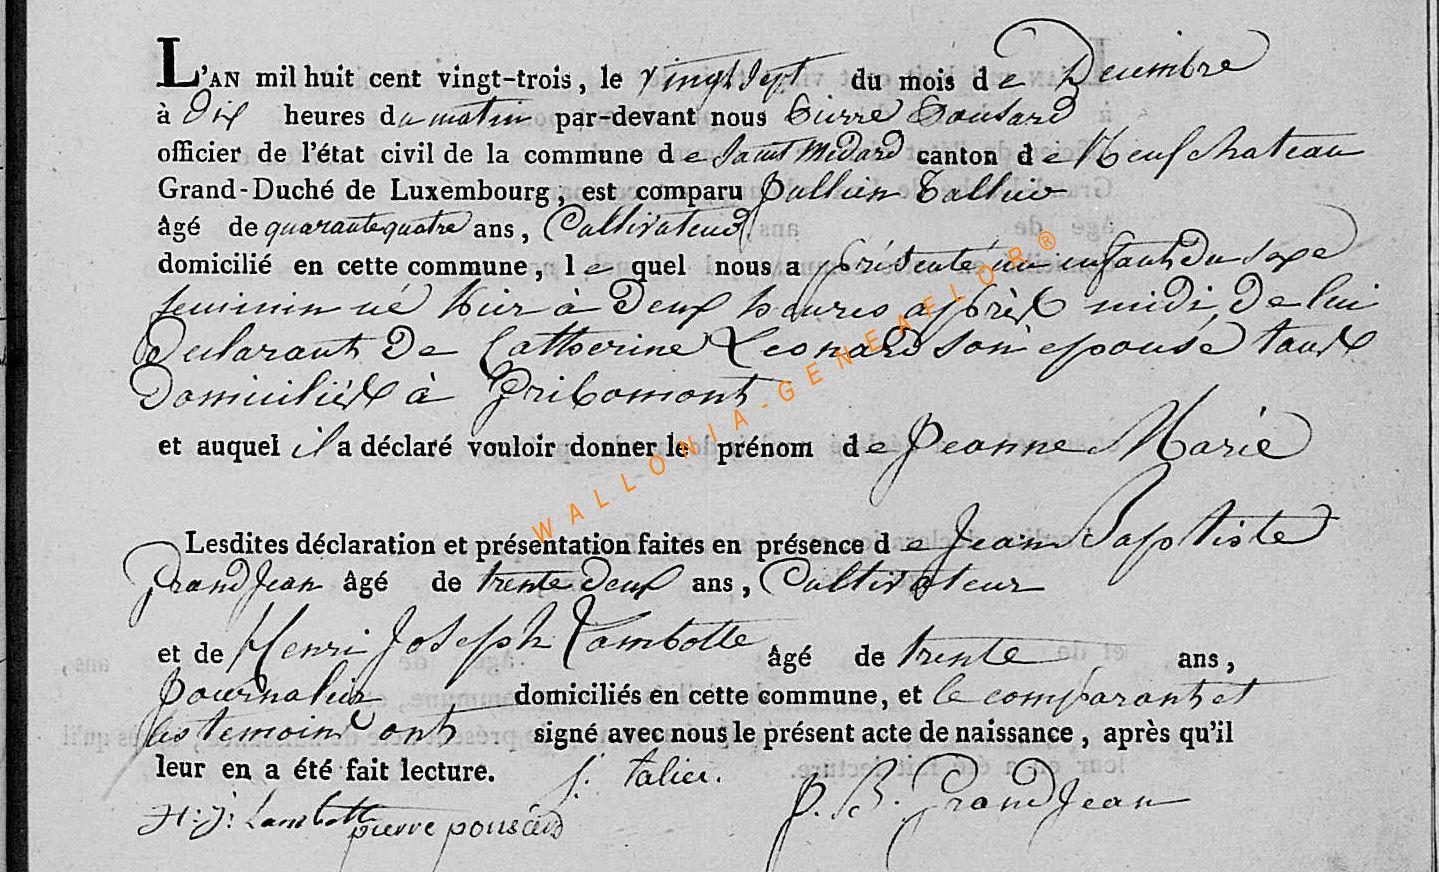 L'AN mil huit cent vingt-trois, le vingt sept du mois de Decembre
à Dix heures du matin par-devant nous Pierre Pousard
officier de l'état civil de la commune de Saint Médard canton de Neufchateau
Grand-Duché de Luxembourg, est comparu Jullien Tallier
âgé de quarante quatre ans, Cultivateur
domicilié en cette commune, le quel nous a présenté un enfant du sexe
feminin né hier à Deux heures après midi, De lui
Declarant De Catherine Leonard son epouse tous
Domiciliés à Gribomont
et auquel il a déclaré vouloir donner le prénom de Jeanne Marie
Lesdites déclaration et présentation faites en présence de Jean Baptiste
GrandJean âgé de trente Deux ans, Cultivateur
et de Henri Joseph Lambotte âgé de trente ans,
Journalier domiciliés en cette commune, et le comparant et
les temoins ont signé avec nous le présent acte de naissance, après qu'il
leur en a été fait lecture. j: talier.
H: J: Lambotte pierre pousard J. B. GrandJean
WALLONIA-GENEAFLOR®